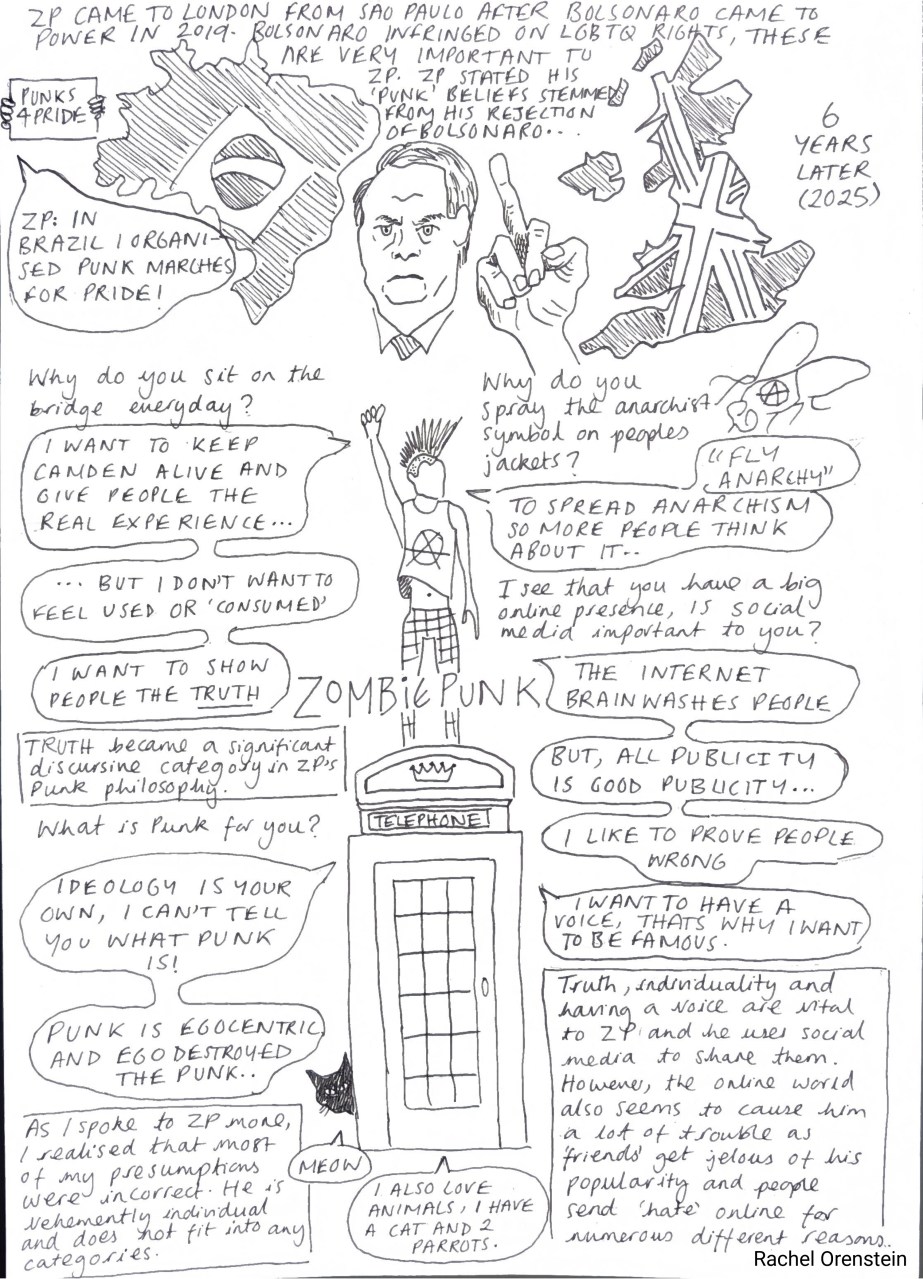 ZP CAME TO LONDON FROM SAO PAULO AFTER BOLSONARO CAME TO
POWER IN 2019. BOLSONARO INFRINGED ON LGBTQ RIGHTS, THESE
ARE VERY IMPORTANT TO
ZP. ZP STATED HIS
'PUNK' BELIEFS STEMMED
FROM HIS REJECTION
OF BOLSONARO...
PUNKS
4PRIDE
6
YEARS
LATER
(2025)
ZP: IN
BRAZIL I ORGANI-
SED PUNK MARCHES
FOR PRIDE!
Why do you sit on the
bridge everyday?
I WANT TO KEEP
CAMDEN ALIVE AND
GIVE PEOPLE THE
REAL EXPERIENCE...
... BUT I DON'T WANT TO
FEEL USED OR 'CONSUMED'
I WANT TO SHOW
PEOPLE THE TRUTH
TRUTH became a significant
discursine category in ZP's
Punk philosophy.
What is Punk for you?
IDEOLOGY IS YOUR
OWN, I CAN'T TELL
YOU WHAT PUNK
IS!
PUNK IS EGOCENTRIC
AND EGO DESTROYED
THE PUNK..
As I spoke to ZP more,
I realised that most
of my presumptions
were incorrect. He is
vehemently individual
and does not fit into any
categories.
A
ZOMBiE PUNK
TELEPHONE
MEOW
I ALSO LOVE
ANIMALS, I HAVE
A CAT AND 2
PARROTS.
Why do you
spray the anarchist
symbol on peoples
jackets?
A
"FLY
ANARCHY"
TO SPREAD ANARCHISM
SO MORE PEOPLE THINK
ABOUT IT..
I see that you have a big
online presence, is social
media important to you?
THE INTERNET
BRAINWASHES PEOPLE
BUT, ALL PUBLICITY
IS GOOD PUBLICITY...
I LIKE TO PROVE PEOPLE
WRONG
I WANT TO HAVE A
VOICE, THATS WHY I WANT
TO BE FAMOUS.
Truth, individuality and
having a voice are vital
to ZP and he uses social
media to share them.
However, the online world
also seems to cause him
a lot of trouble as
'friends' get jelous of his
popularity and people
send 'hate' online for
numerous different reasons..
Rachel Orenstein